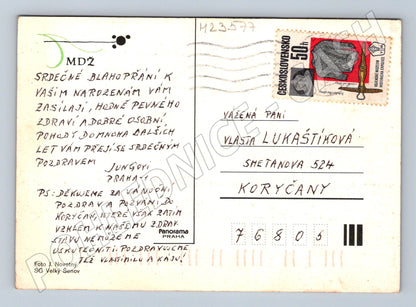 423577
MD2
SRDEČNÉ BLAHOPŘÁNÍ K
VAŠIM NAROZENÁM VÁM
ZASÍLAJÍ, HODNĚ PEVNÉHO
ZDRAVÍ A DOBRÉ OSOBNÍ
POHODY DO MNOHA DALŠÍCH
LET VÁM PŘEJÍ SE SRDEČNÝM
POZDRAVEM
JUNGOVI
PRAHA
PS: DĚKUJEME ZA VÁNOČNÍ
POZDRAV A POZVÁNÍ DO
KORYČAN, KTERÉ VŠAK ZATÍM
VZHLEM K NAŠEMU ZDRAV.
STAVU NEMŮŽEME
USKUTEČNITI. POZDRAVUJEME
TÉŽ VLASTIMILU A KÁJU!
Foto J. Novotný
SG Velký Šenov
Panorama
PRAHA
ČESKOSLOVENSKO
50h
VÁŽENÁ PANÍ
VLASTA LUKAŠTÍKOVÁ
SMETANOVA 524
KORYČANY
76805